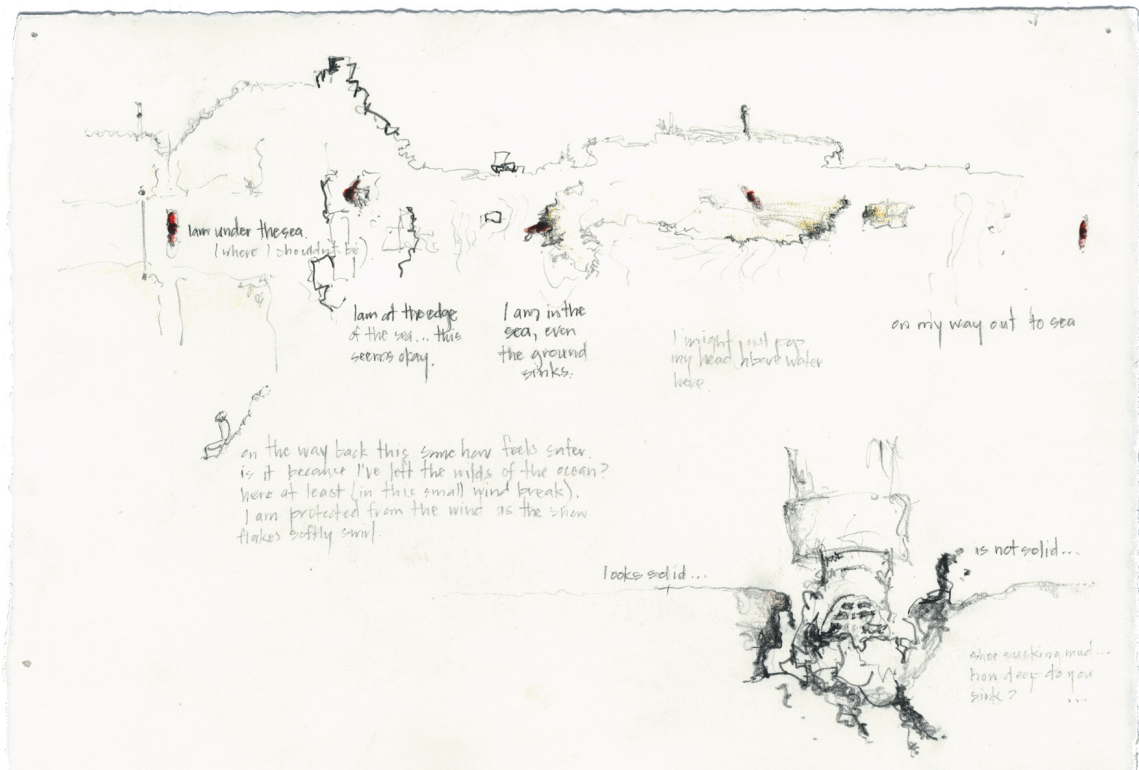 I am under the sea.
(where I shouldn't be)
I am at the edge
of the sea... this
seems okay.
I am in the
sea, even
the ground
sinks.
I might just pop
my head above water
here.
on my way out to sea
on the way back this somehow feels safer.
is it because I've left the wilds of the ocean?
here at least (in this small wind break).
I am protected from the wind as the snow
flakes softly swirl.
looks solid...
is not solid...
shoe sucking mud...
how deep do you
sink? ...